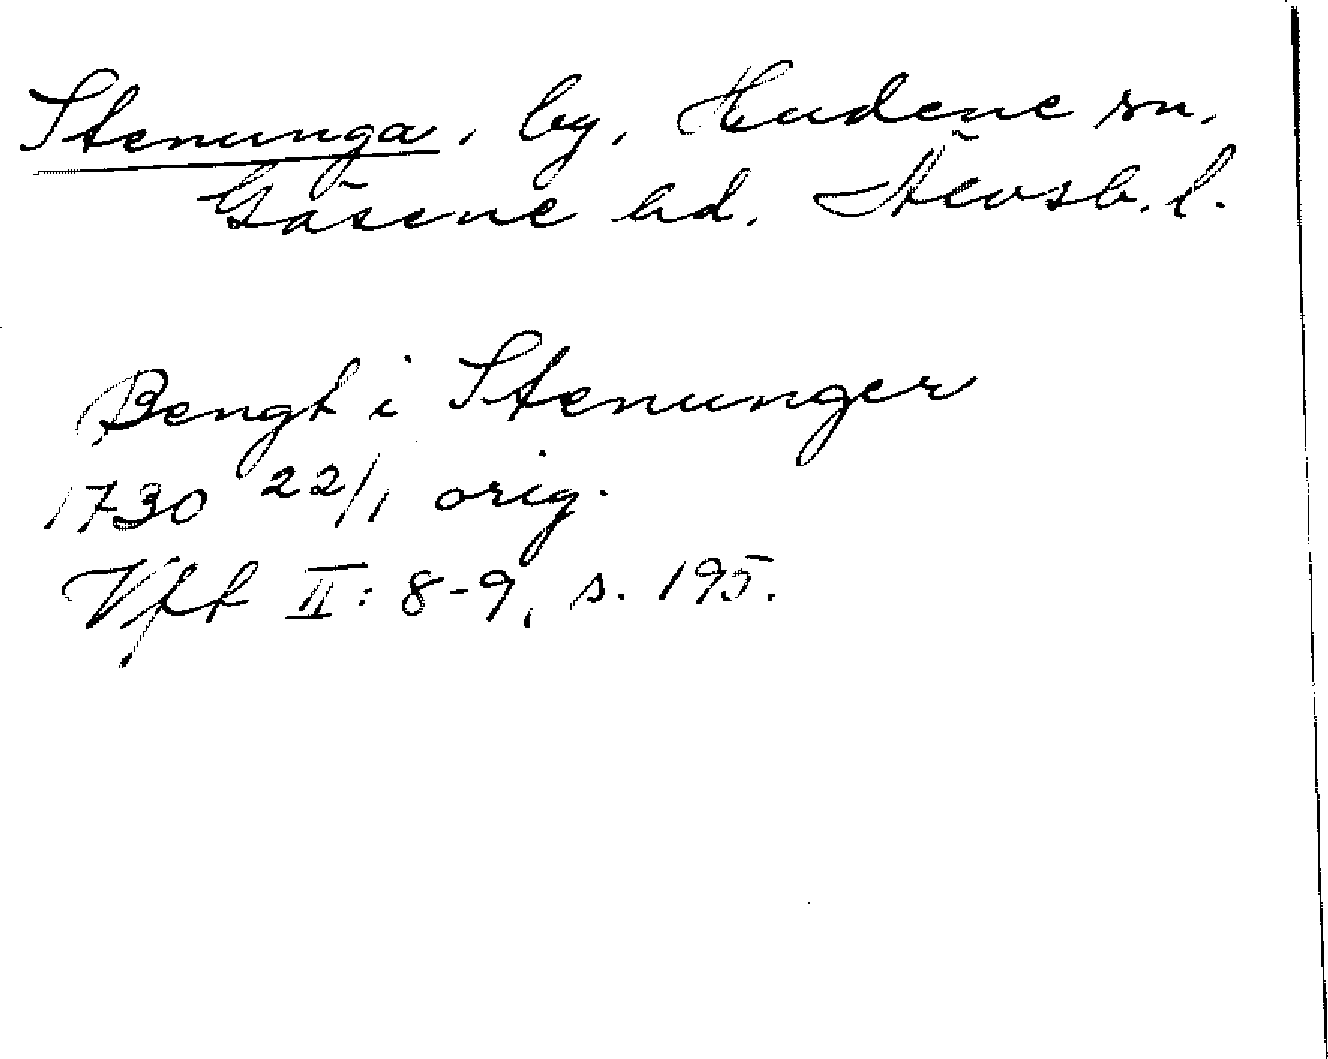 Stenunga, by, Hudene sn,
Gäsene hd. Älvsb. l.
Bengt i Stenunger
1730 22/1 orig.
Vfft II: 8-9, s. 195.